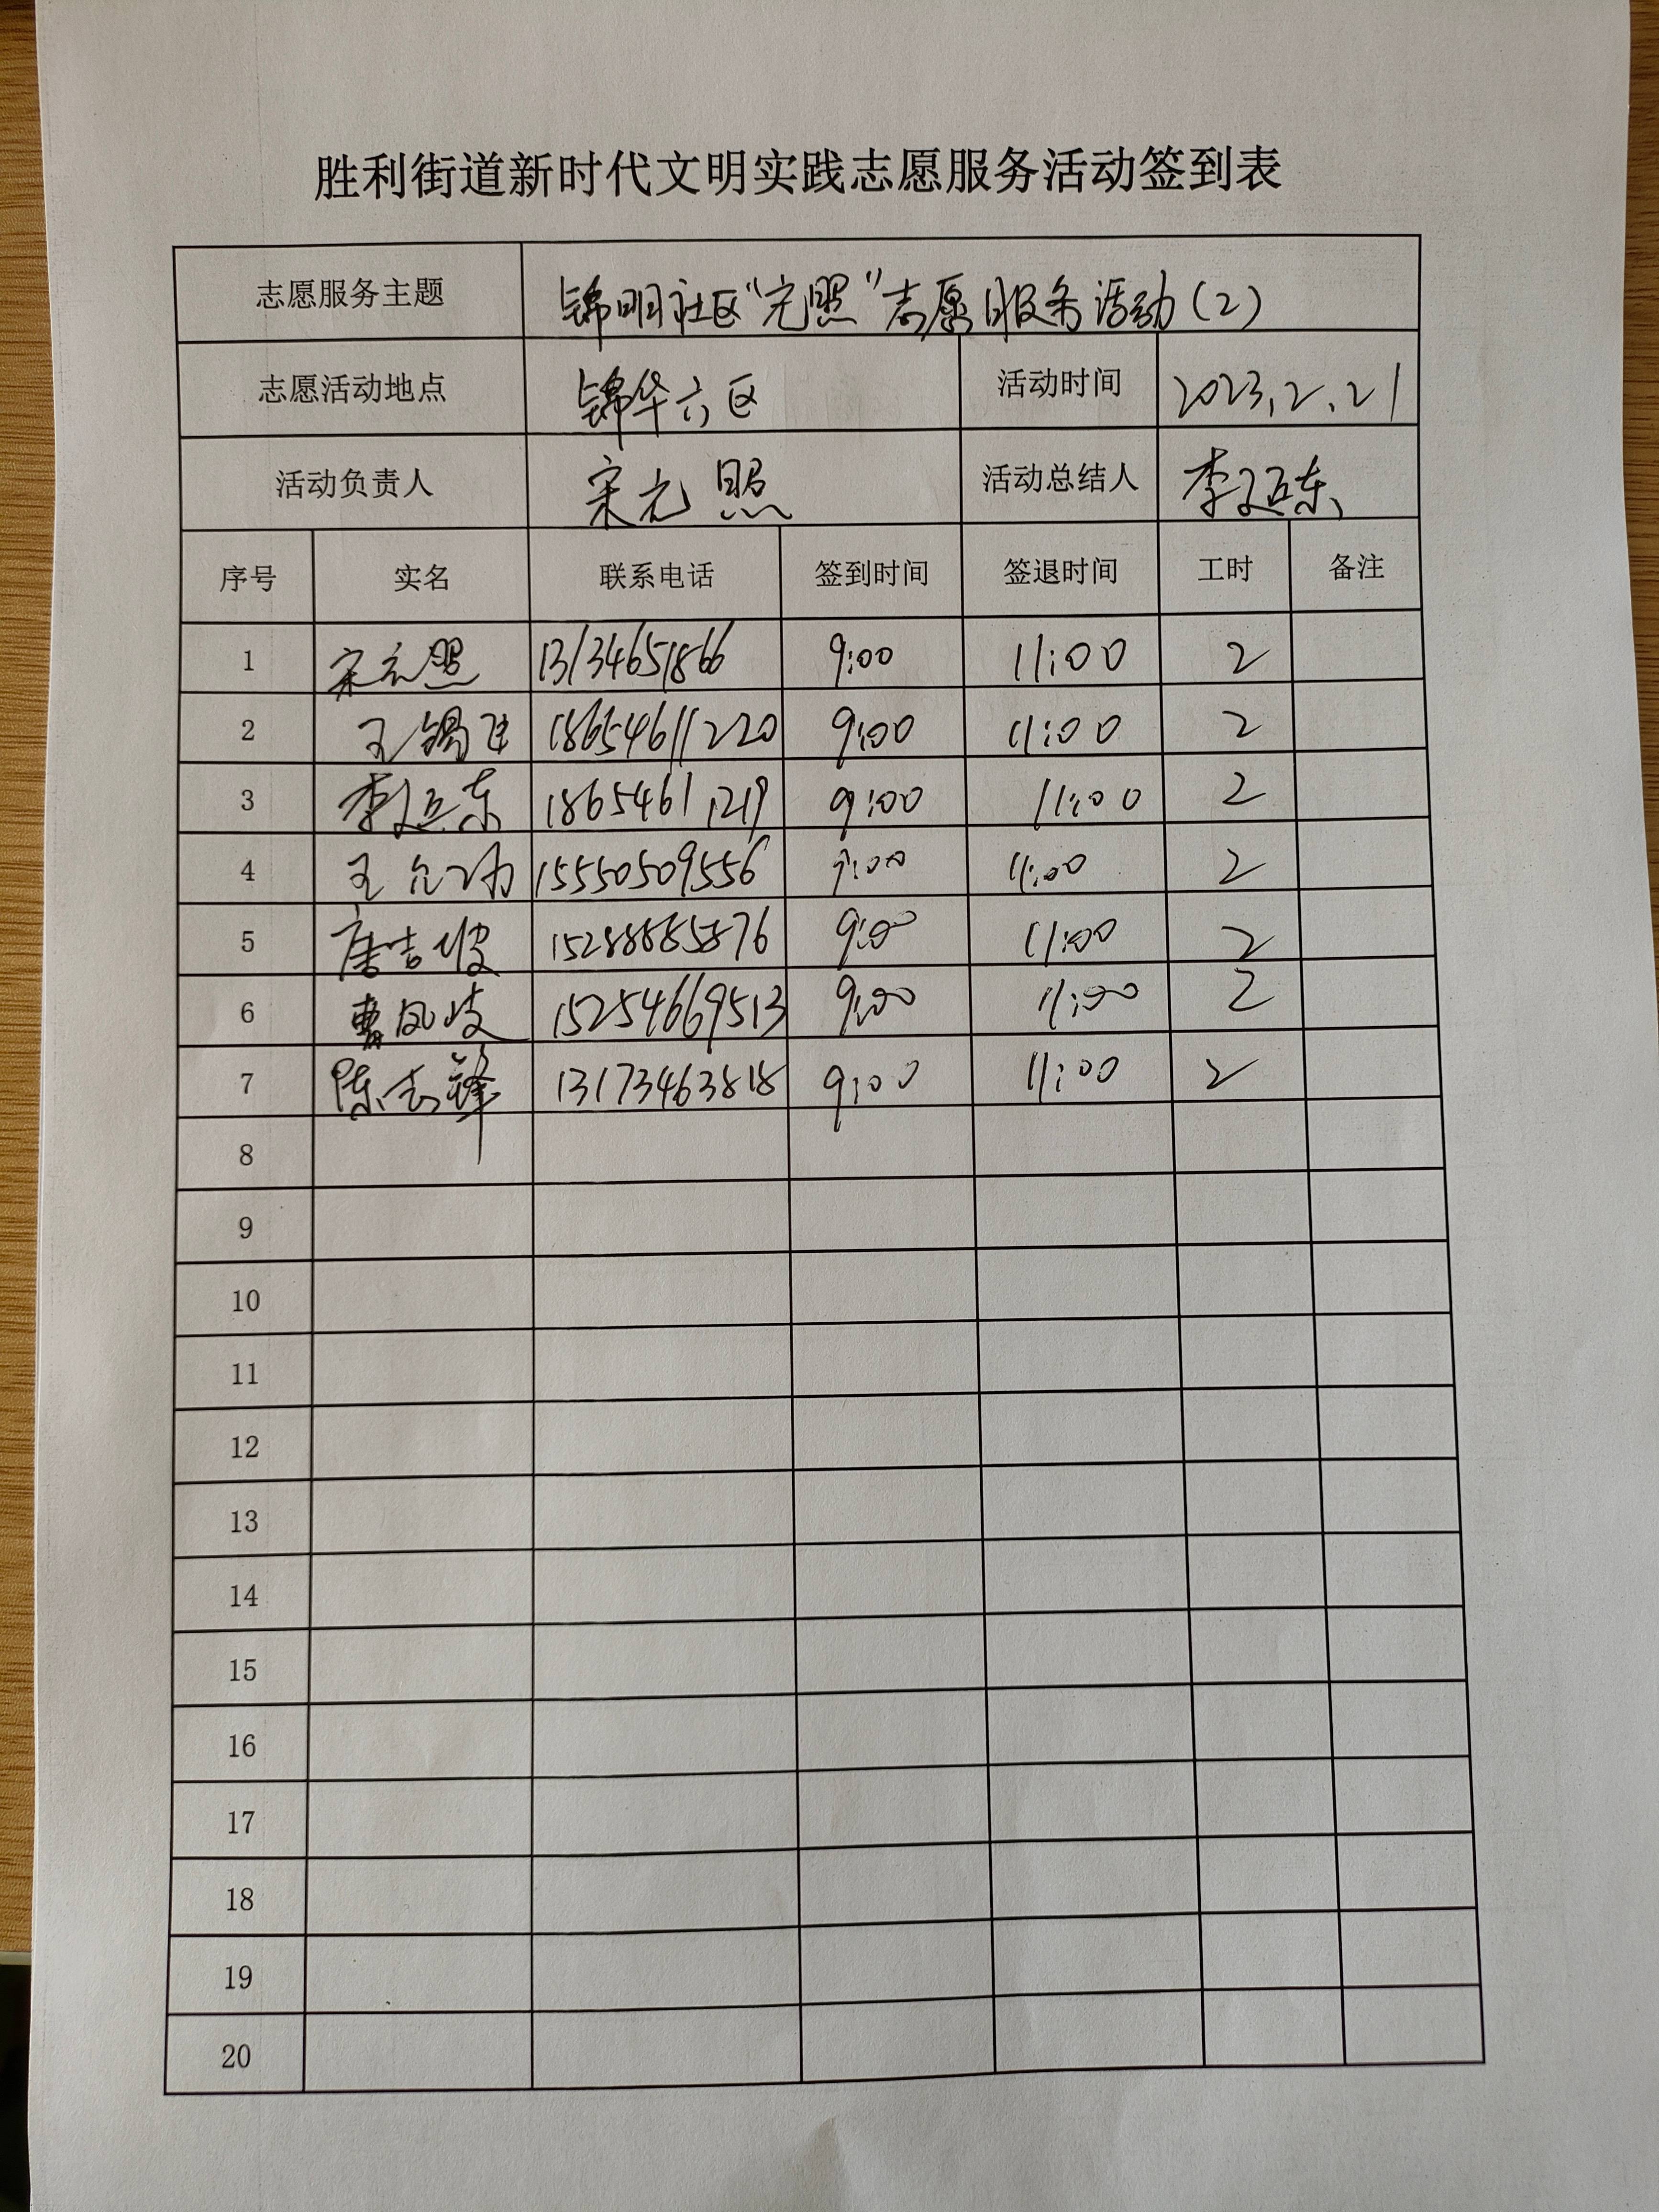 胜利街道新时代文明实践志愿服务活动签到表
志愿服务主题 锦明社区“元照”志愿服务活动(2)
志愿活动地点 锦华六区 活动时间 2023.2.21
活动负责人 宋元照 活动总结人 李延东
序号 实名 联系电话 签到时间 签退时间 工时 备注
1 宋元照 13134651866 9:00 11:00 2
2 王锡 18654611220 9:00 11:00 2
3 李延东 18654611219 9:00 11:00 2
4 王 15550509556 9:00 11:00 2
5 唐吉坡 15288885876 9:00 11:00 2
6 曹凤岐 15254669513 9:00 11:00 2
7 陈志锋 13173463818 9:00 11:00 2
8
9
10
11
12
13
14
15
16
17
18
19
20